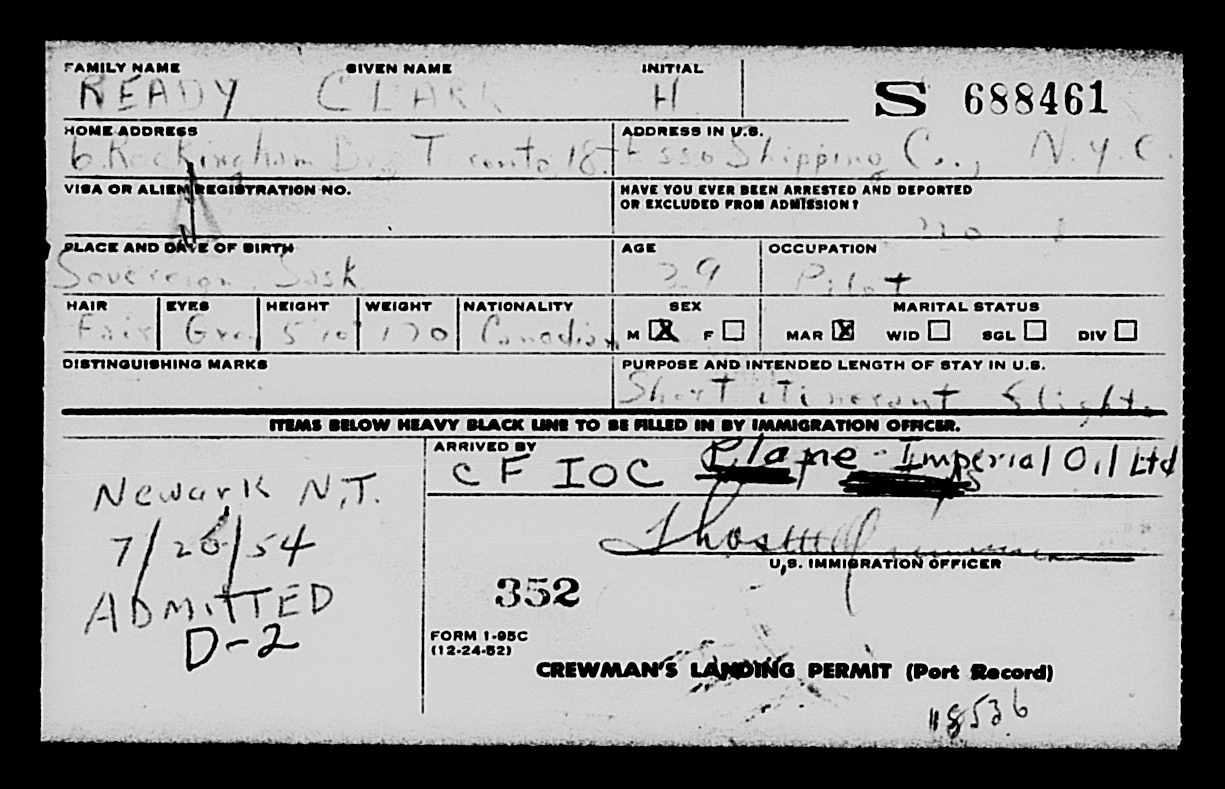 FAMILY NAME GIVEN NAME INITIAL
READY CLARK H S 688461
HOME ADDRESS ADDRESS IN U.S.
6 Rockingham Dr. Toronto 18 Esso Shipping Co., N.Y.C.
VISA OR ALIEN REGISTRATION NO. HAVE YOU EVER BEEN ARRESTED AND DEPORTED
OR EXCLUDED FROM ADMISSION?
no
PLACE AND DATE OF BIRTH AGE OCCUPATION
Sovereign, Sask 39 Pilot
HAIR EYES HEIGHT WEIGHT NATIONALITY SEX MARITAL STATUS
Fair 5'10 170 Canadian M X F MAR X WID SGL DIV
DISTINGUISHING MARKS PURPOSE AND INTENDED LENGTH OF STAY IN U.S.
Short itinerant flight.
ITEMS BELOW HEAVY BLACK LINE TO BE FILLED IN BY IMMIGRATION OFFICER.
ARRIVED BY
CF IOC Plane - Imperial Oil Ltd
Newark N.J.
7/26/54
ADMITTED
D-2
Thos
U.S. IMMIGRATION OFFICER
352
FORM I-95C
(12-24-52)
CREWMAN'S LANDING PERMIT (Port Record)
118536